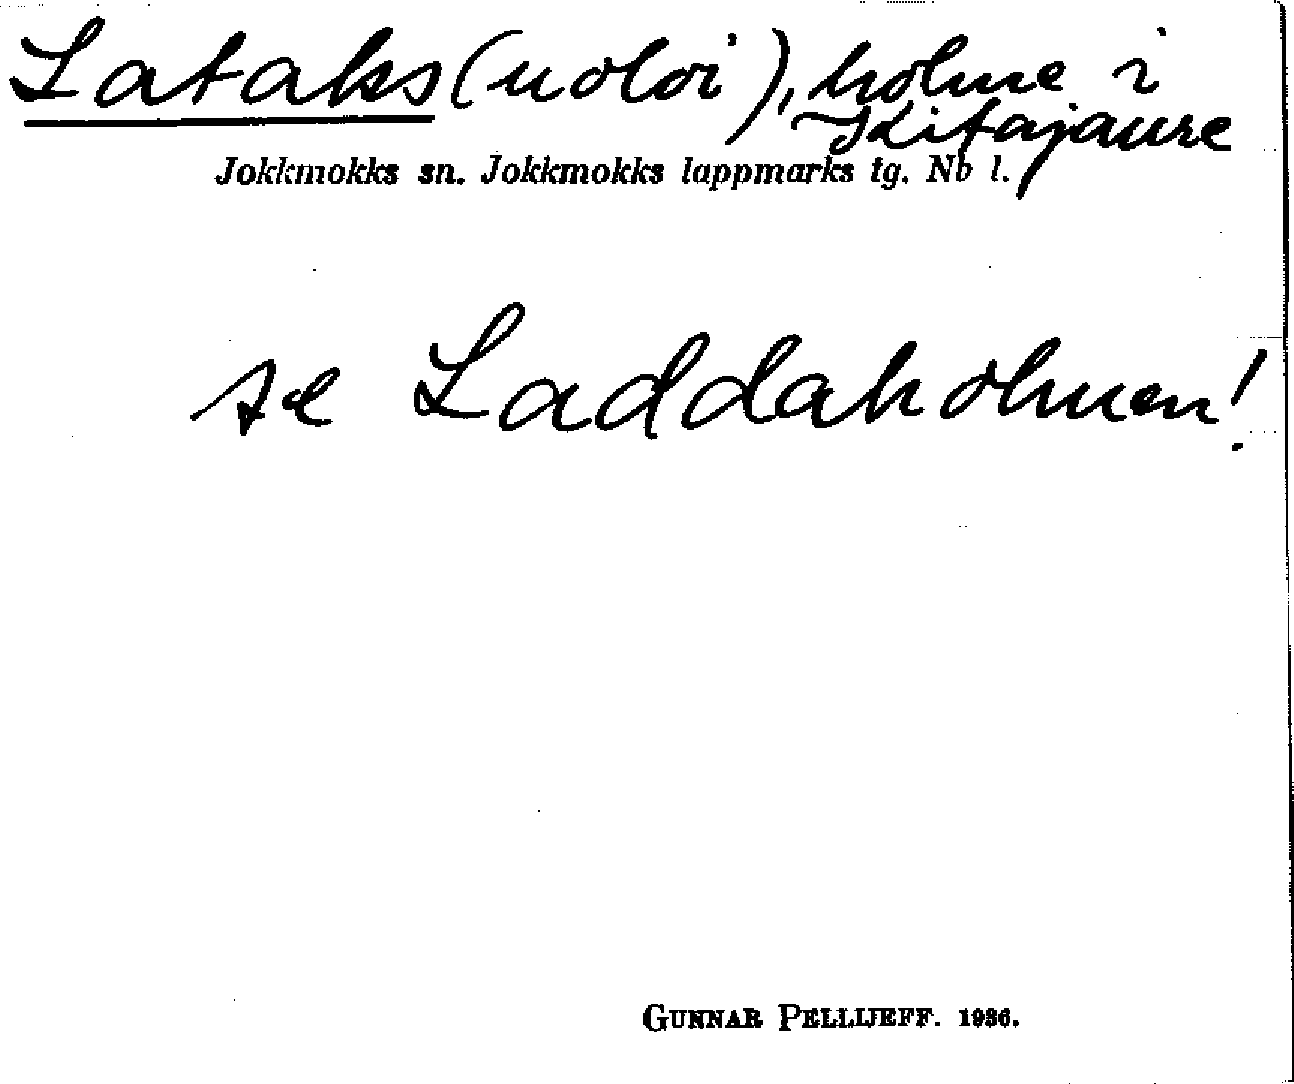 Lataks (uoloi), holme i
Skitajaure
Jokkmokks sn. Jokkmokks lappmarks tg. Nb l.
se Laddaholmen!
GUNNAR PELLIJEFF. 1936.